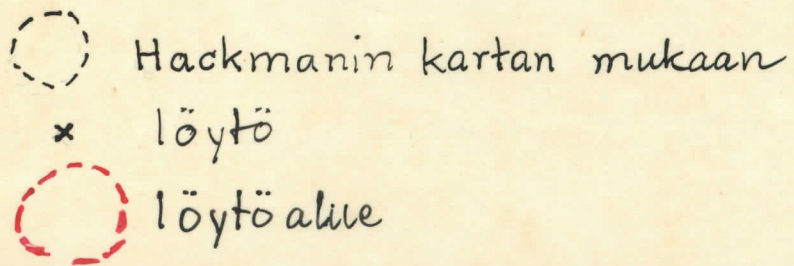 Hackmanin kartan mukaan
x löytö
löytöalue